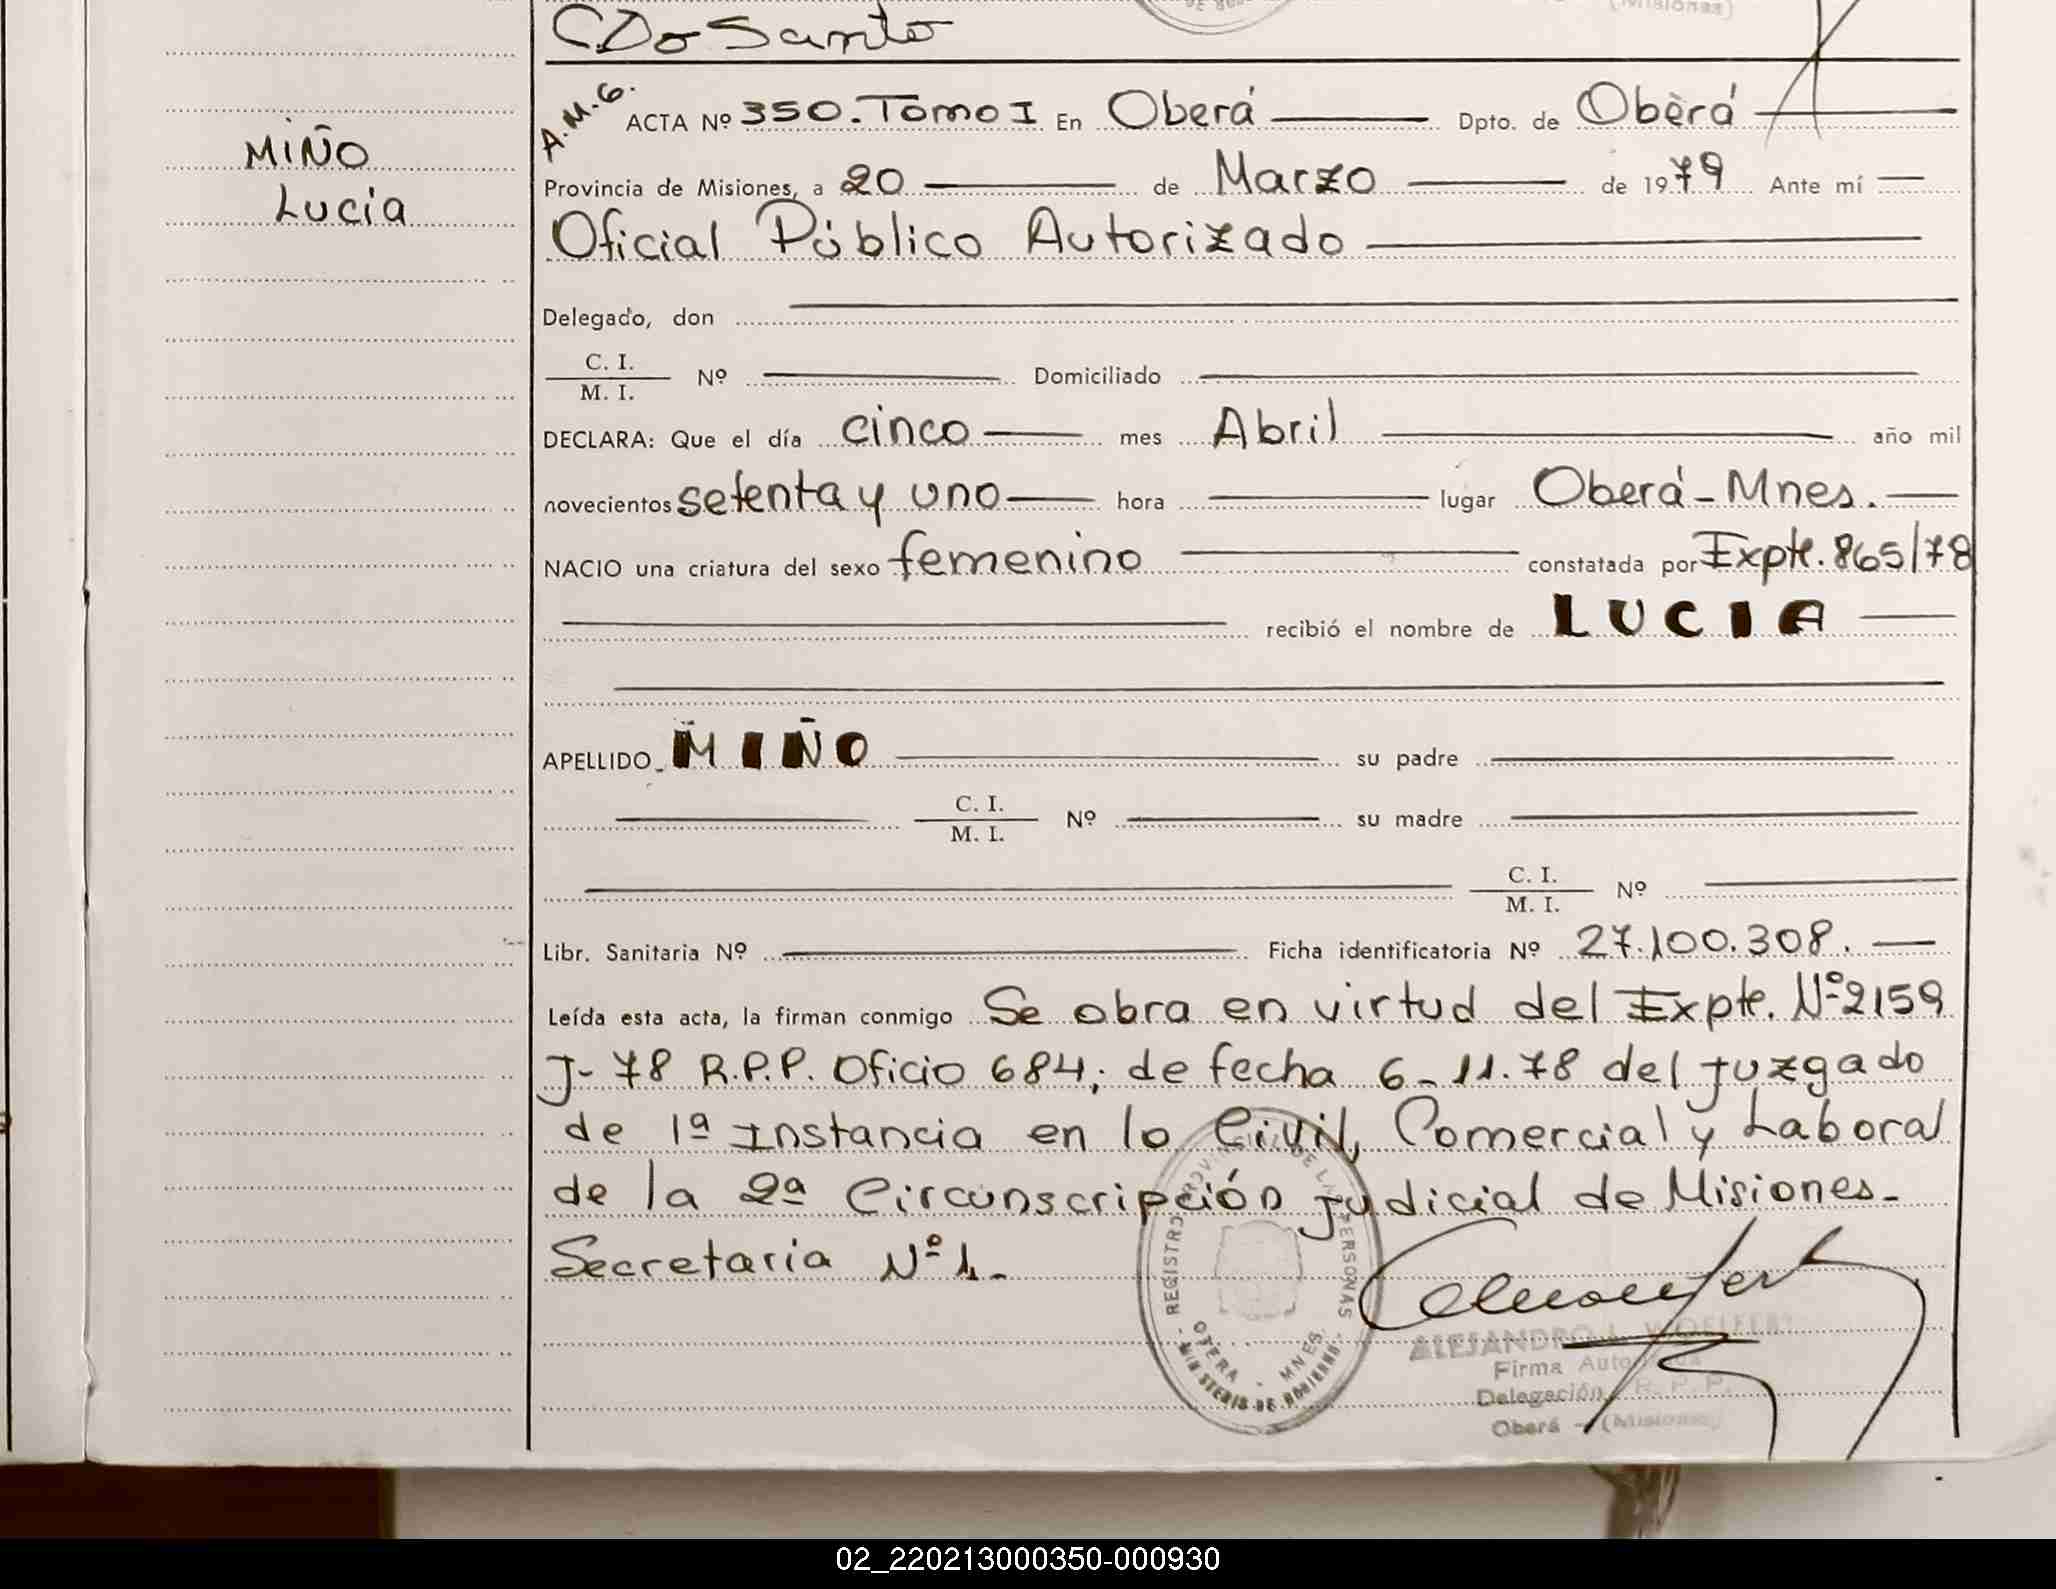 CDoSanto
A.M.G.
ACTA Nº 350. Tomo I En Oberá Dpto. de Oberá
MIÑO
Lucía
Provincia de Misiones, a 20 de Marzo de 1979 Ante mí
Oficial Público Autorizado
Delegado, don
C. I.
M. I. Nº Domiciliado
DECLARA: Que el día cinco mes Abril año mil
novecientos setenta y uno hora lugar Oberá - Mnes.
NACIO una criatura del sexo femenino constatada por Expte. 865/78
recibió el nombre de LUCIA
APELLIDO MIÑO su padre
C. I.
M. I. Nº su madre
C. I.
M. I. Nº
Libr. Sanitaria Nº Ficha identificatoria Nº 27.100.308.
Leída esta acta, la firman conmigo Se obra en virtud del Expte. Nº 2159
J-78 R.P.P. Oficio 684; de fecha 6-11.78 del Juzgado
de 1ª Instancia en lo Civil, Comercial y Laboral
de la 2ª Circunscripción Judicial de Misiones-
Secretaria Nº 1.-
REGISTRO PROVINCIAL DE LAS PERSONAS
MNES.
MINISTERIO DE GOBIERNO
ALEJANDRO L.
Firma Autorizada
Delegación R. P. P.
Oberá - (Misiones)
02_220213000350-000930